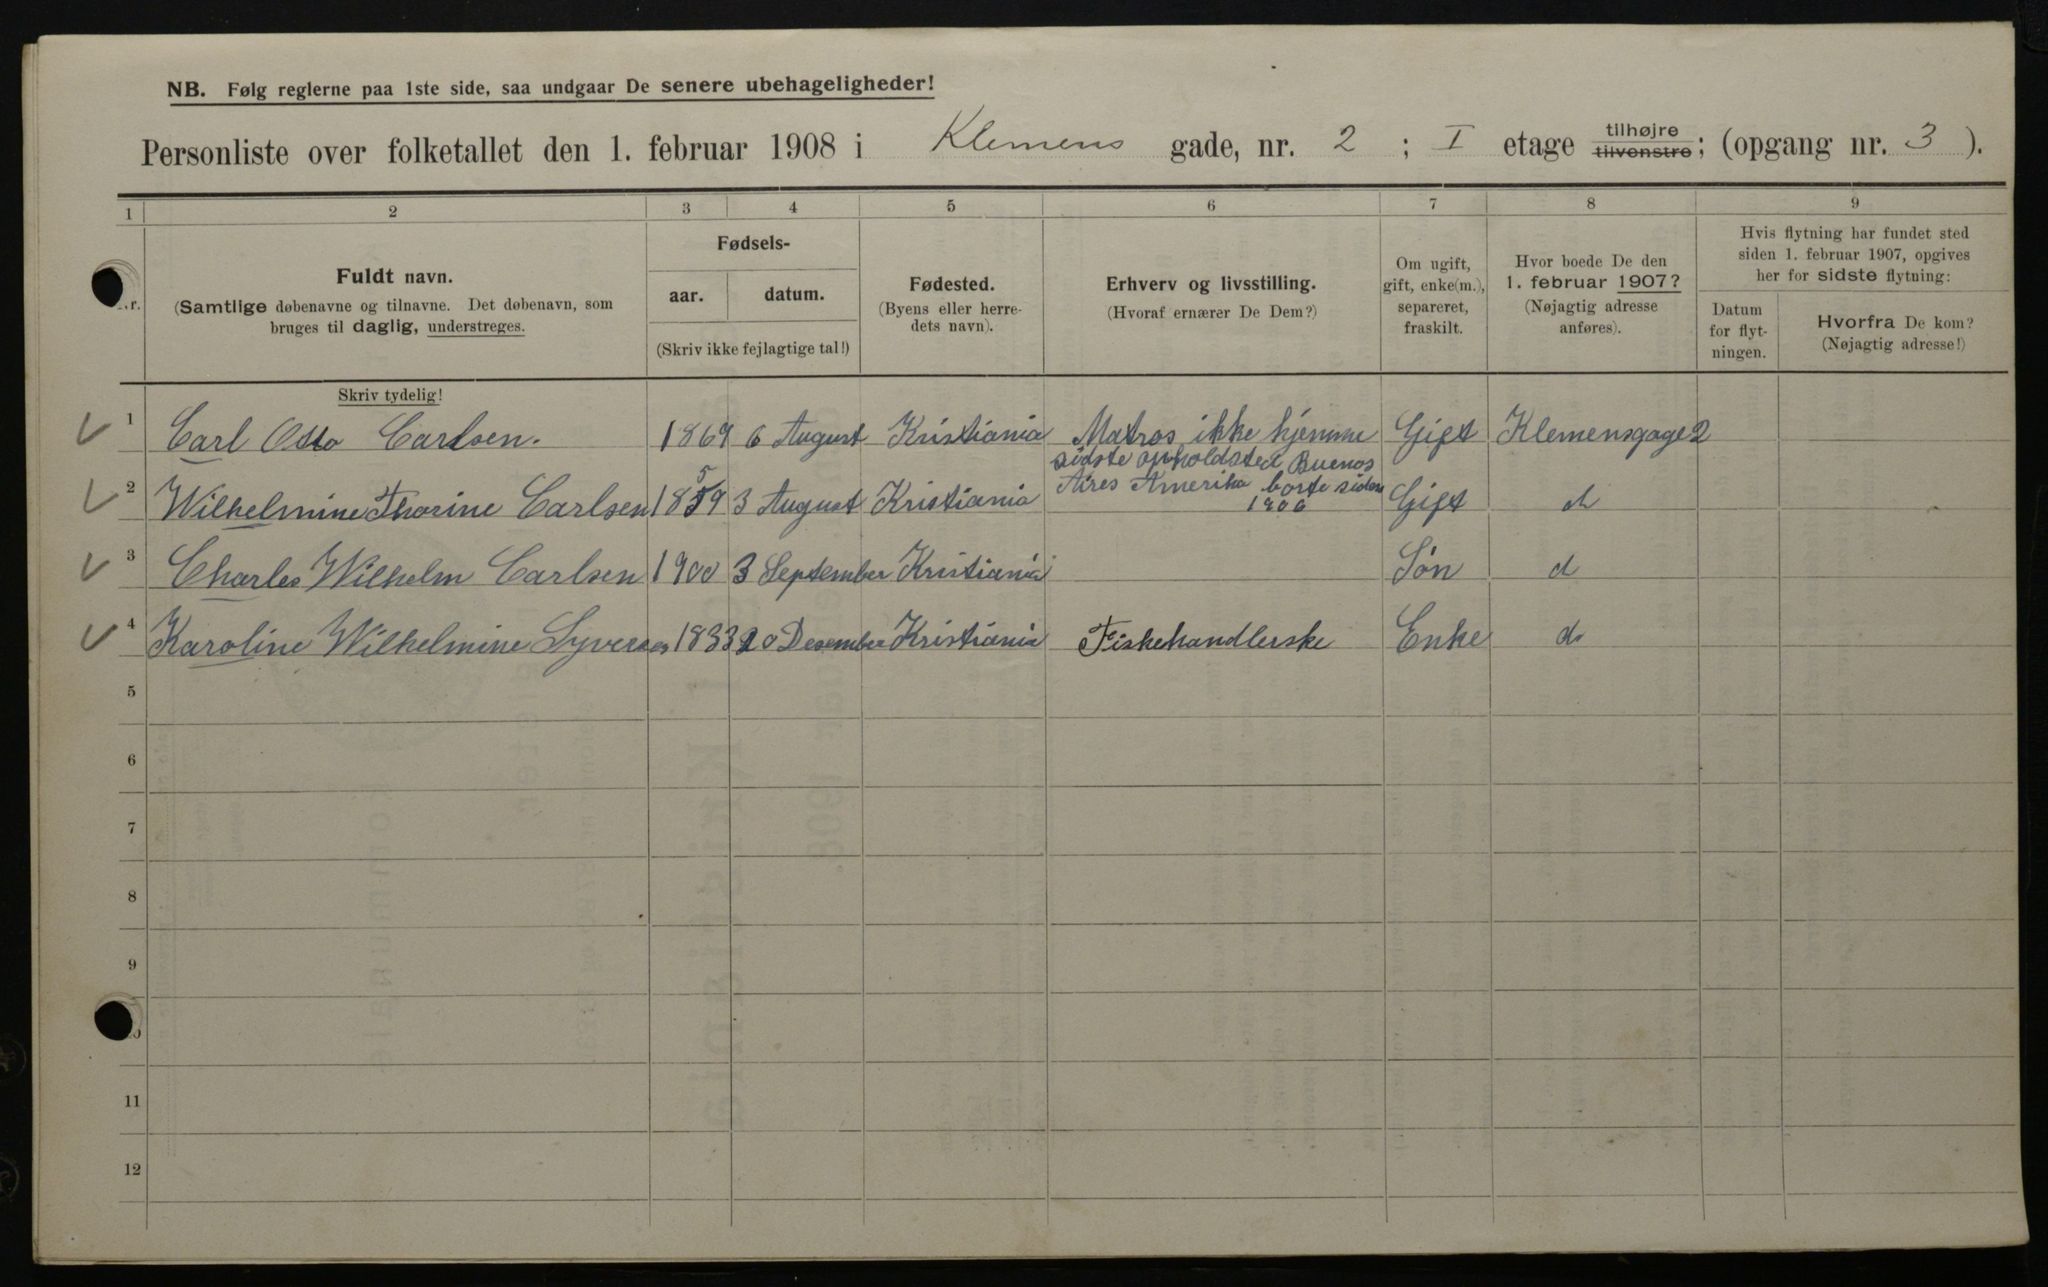 NB. Følg reglerne paa 1ste side, saa undgaar De senere ubehageligheder!
Personliste over folketallet den 1. februar 1908 i Klemens gade, nr. 2 ; I etage tilhøjre tilvenstre; (opgang nr. 3 ).
1 2 3 4 5 6 7 8 9
Nr.
Fuldt navn.
(Samtlige døbenavne og tilnavne. Det døbenavn, som
bruges til daglig, understreges.
Skriv tydelig!
Fødsels-
aar. datum.
(Skriv ikke fejlagtige tal!)
Fødested.
(Byens eller herre-
dets navn).
Erhverv og livsstilling.
(Hvoraf ernærer De Dem?)
Om ugift,
gift, enke(m.),
separeret,
fraskilt.
Hvor boede De den
1. februar 1907?
(Nøjagtig adresse
anføres).
Hvis flytning har fundet sted
siden 1. februar 1907, opgives
her for sidste flytning:
Datum
for flyt-
ningen.
Hvorfra De kom?
(Nøjagtig adresse!)
1 Carl Otto Carlsen. 1869 6 August Kristiania Matros ikke hjemme Gift Klemensgage 2
sidste opholdsted Buenos
2 Wilhelmine Thorine Carlsen 1859 3 August Kristiania Aires Amerika borte siden Gift d
1906
3 Charles Wilhelm Carlsen 1900 3 September Kristiania Søn d
4 Karoline Wilhelmine Syversen 1833 20 Desember Kristiania Fiskehandlerske Enke do
5
6
7
8
9
10
11
12